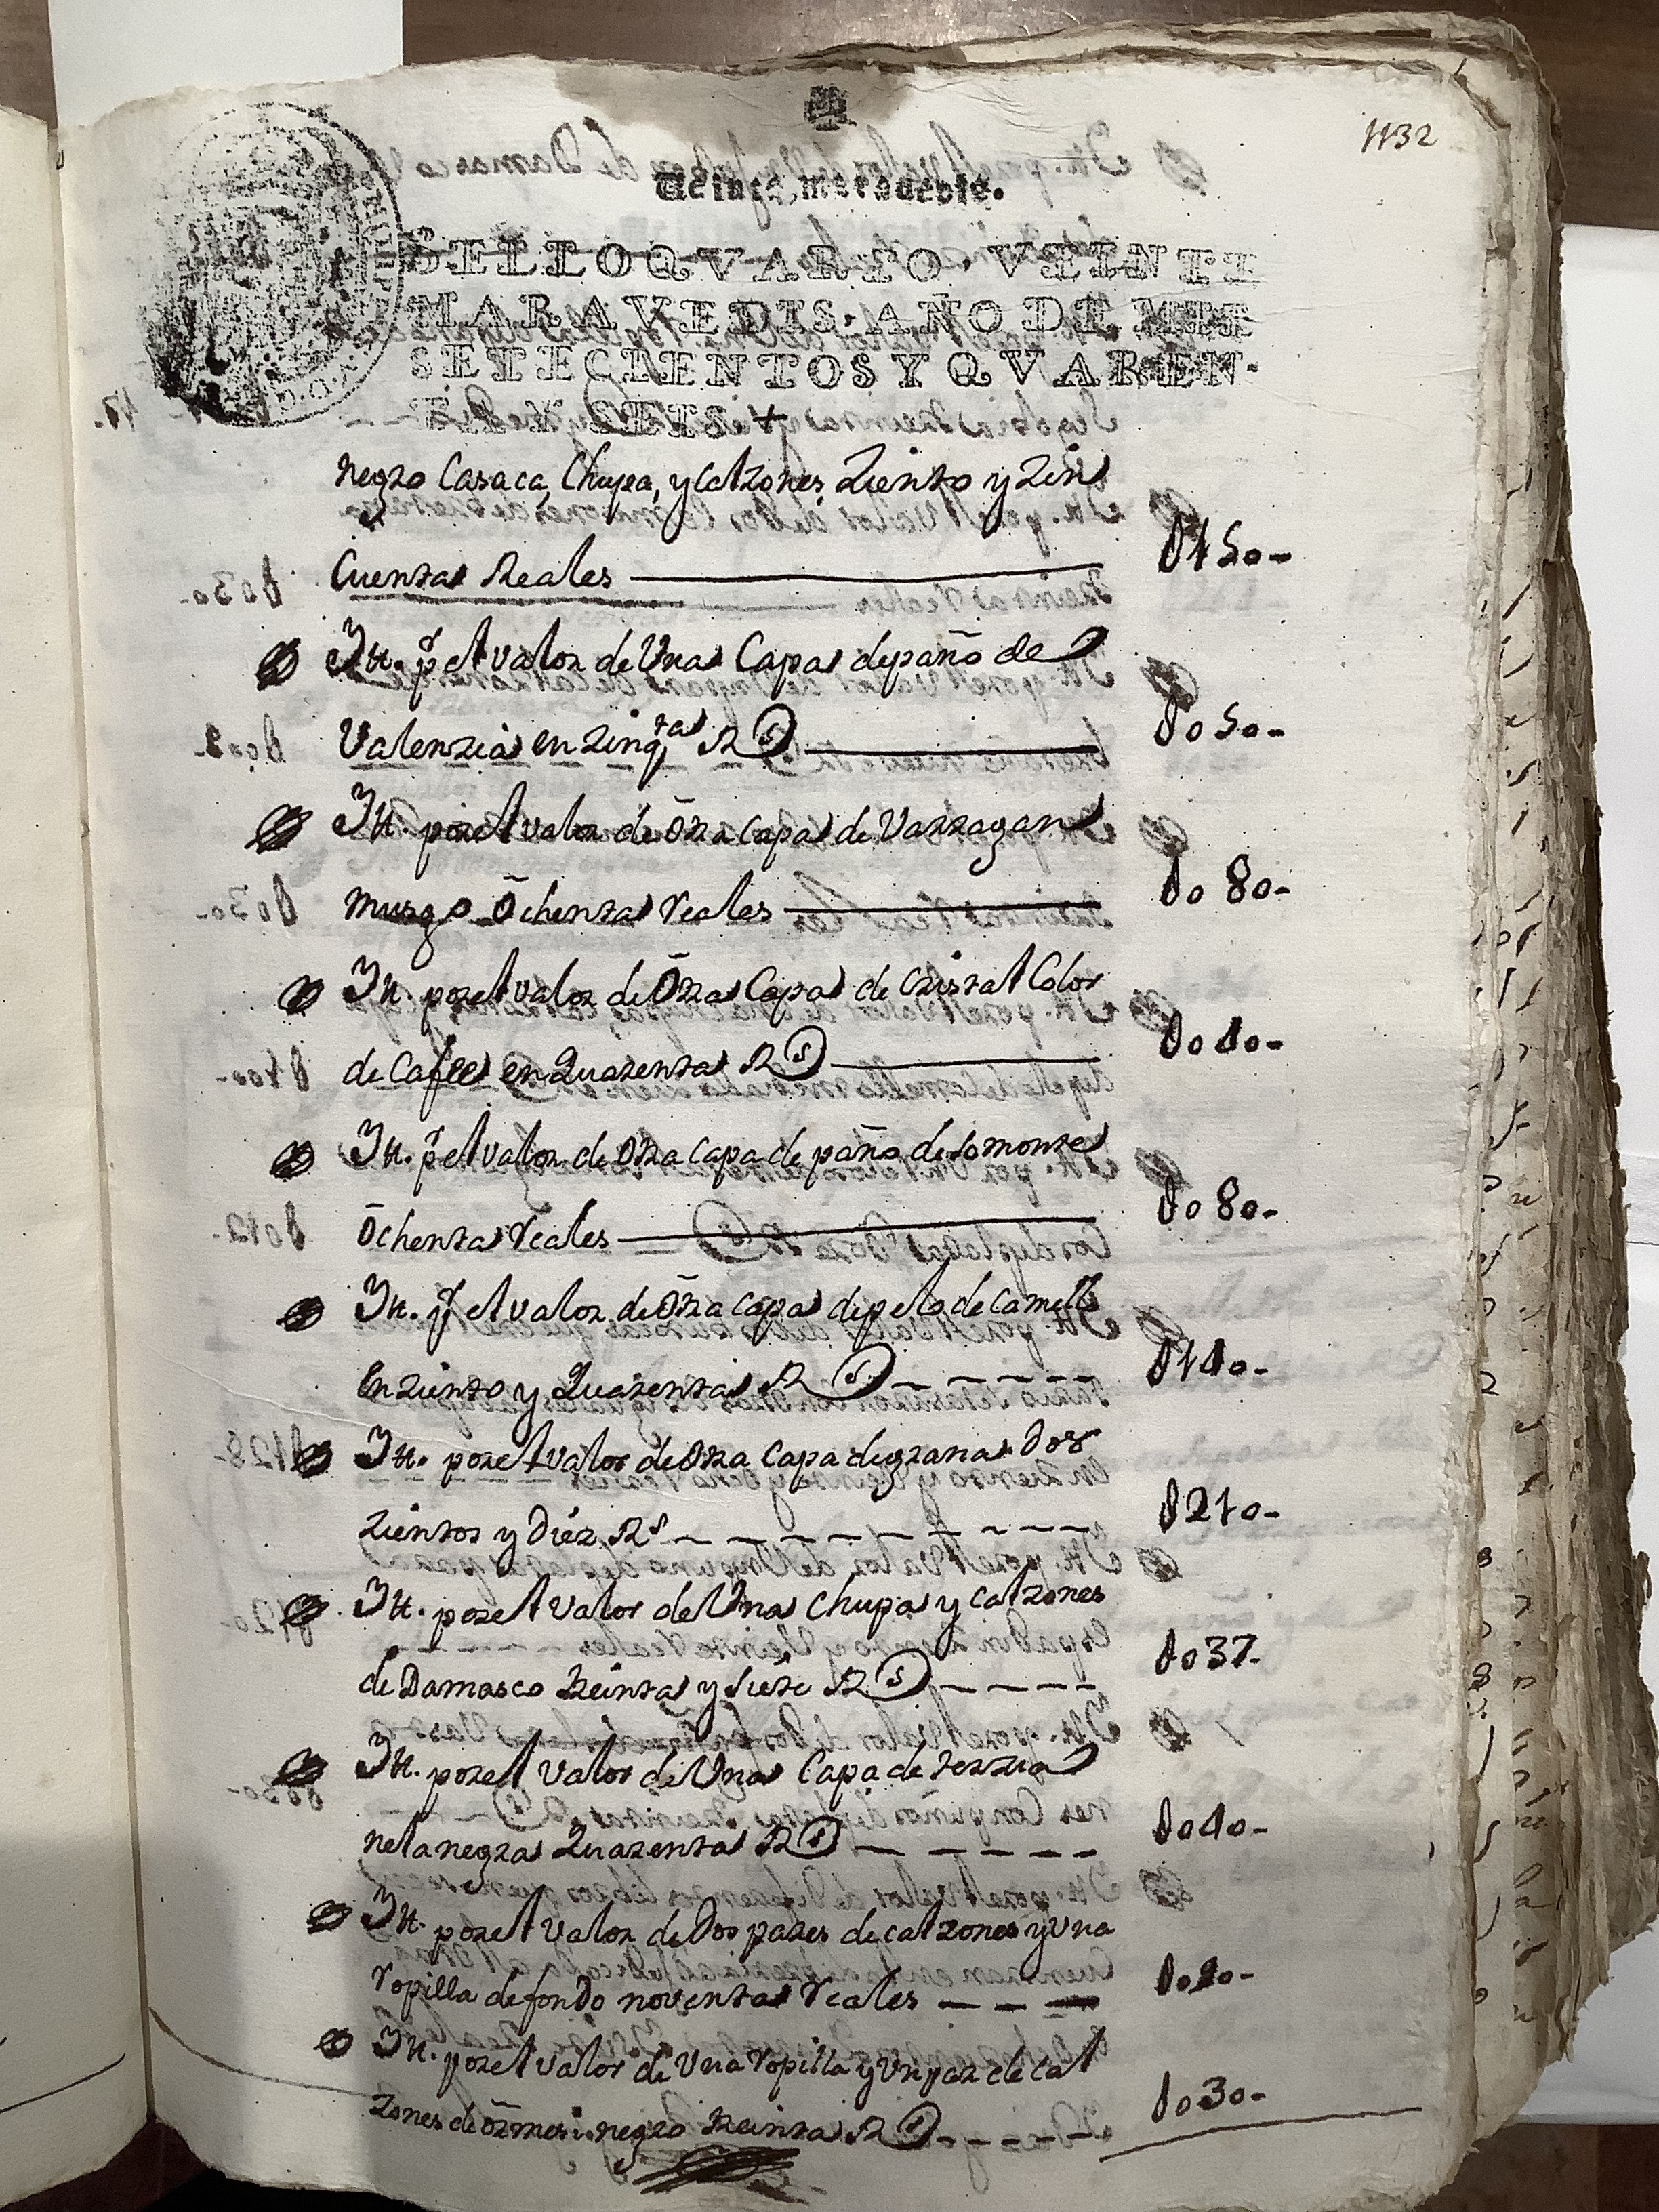 1132
Veinte maravedis.
SELLO QVARTO, VEINTE
MARAVEDIS, AÑO DE MIL
SETECIENTOS Y QVAREN-
TA Y SEIS +
negro Casaca, Chupa, y calzones Ziento y Zin
Cuenta Reales 0150-
Itt. pr el valor de Una Capa de paño de
Valenzia en Zinqta R s 0050-
Itt. por el valor de Otra Capa de Varragan
musgo Ochenta reales 0080-
Itt. por el valor de Otra Capa de Cristal Color
de Cafee en Quarenta R s 0040-
Itt. pr el valor de Otra Capa de paño de somonte
Ochenta reales 0080-
Itt. pr el valor de Otra Capa de pelo de Camello
en Ziento y Quarenta R s 0140-
Itt. por el valor de Otra Capa de grana Dos
Zientos y Diez Rs 0210-
Itt. por el valor de Una Chupa y Calzones
de Damasco treinta y siete R s 0037-
Itt. por el valor de Una Capa de terzia
nela negra Quarenta R s 0040-
Itt. por el valor de Dos pares de calzones y Una
ropilla de fondo noventa reales 0090-
Itt. por el valor de Una ropilla y Un par de Cal
zones de negro treinta R s 0030-